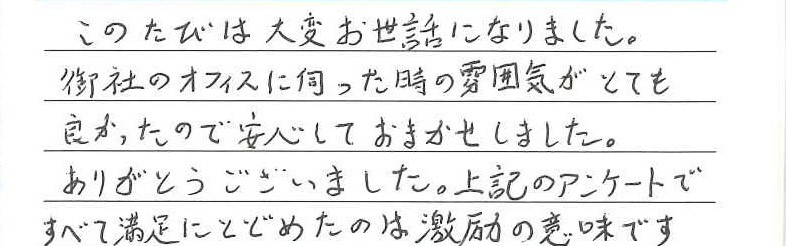 このたびは大変お世話になりました。
御社のオフィスに伺った時の雰囲気がとても
良かったので安心しておまかせしました。
ありがとうございました。上記のアンケートで
すべて満足にとどめたのは激励の意味です